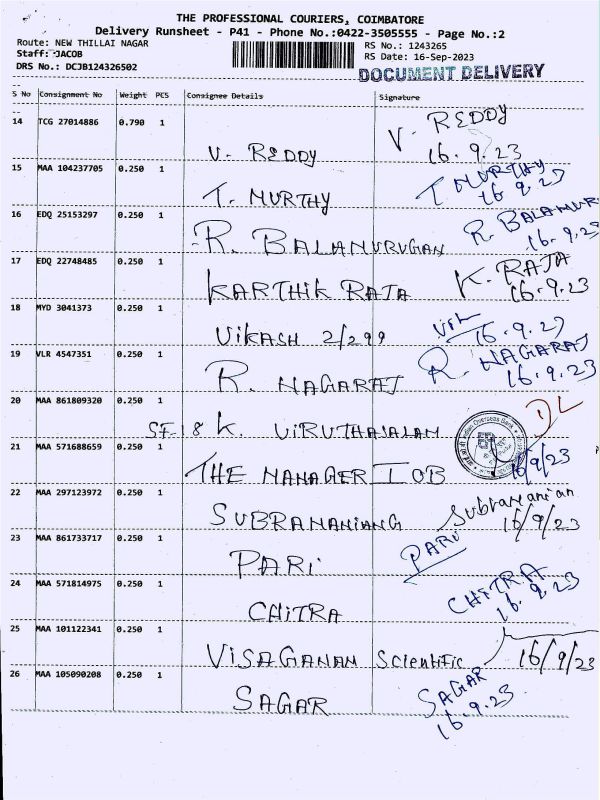 THE PROFESSIONAL COURIERS, COIMBATORE
Delivery Runsheet - P41 - Phone No.:0422-3505555 - Page No.:2
Route: NEW THILLAI NAGAR RS No.: 1243265
Staff: JACOB RS Date: 16-Sep-2023
DRS No.: DCJB124326502 DOCUMENT DELIVERY
S No Consignment No Weight PCS Consignee Details Signature
14 TCG 27014886 0.790 1 V. REDDY V. REDDY
16.9.23
15 MAA 104237705 0.250 1 T. MURTHY T MURTHY
16.9.23
16 EDQ 25153297 0.250 1 R. BALAMURUGAN R. BALAMUR
16.9.23
17 EDQ 22748485 0.250 1 KARTHIK RAJA K. RAJA
16.9.23
18 MYD 3041373 0.250 1 VIKASH 2/299 16.9.23
19 VLR 4547351 0.250 1 R. NAGARAJ R. NAGARAJ
16.9.23
20 MAA 861809320 0.250 1 SF-18 K VIRUTHAJALAM DL
Indian Overseas Bank
21 MAA 571688659 0.250 1 THE MANAGER IOB 16/9/23
22 MAA 297123972 0.250 1 SUBRAMANIANG Subramanian
16/9/23
23 MAA 861733717 0.250 1 PARI PARI
24 MAA 571814975 0.250 1 CHITRA CHITRA
16.9.23
25 MAA 101122341 0.250 1 VISAGANAM Scientific 16/9/23
26 MAA 105090208 0.250 1 SAGAR SAGAR
16.9.23